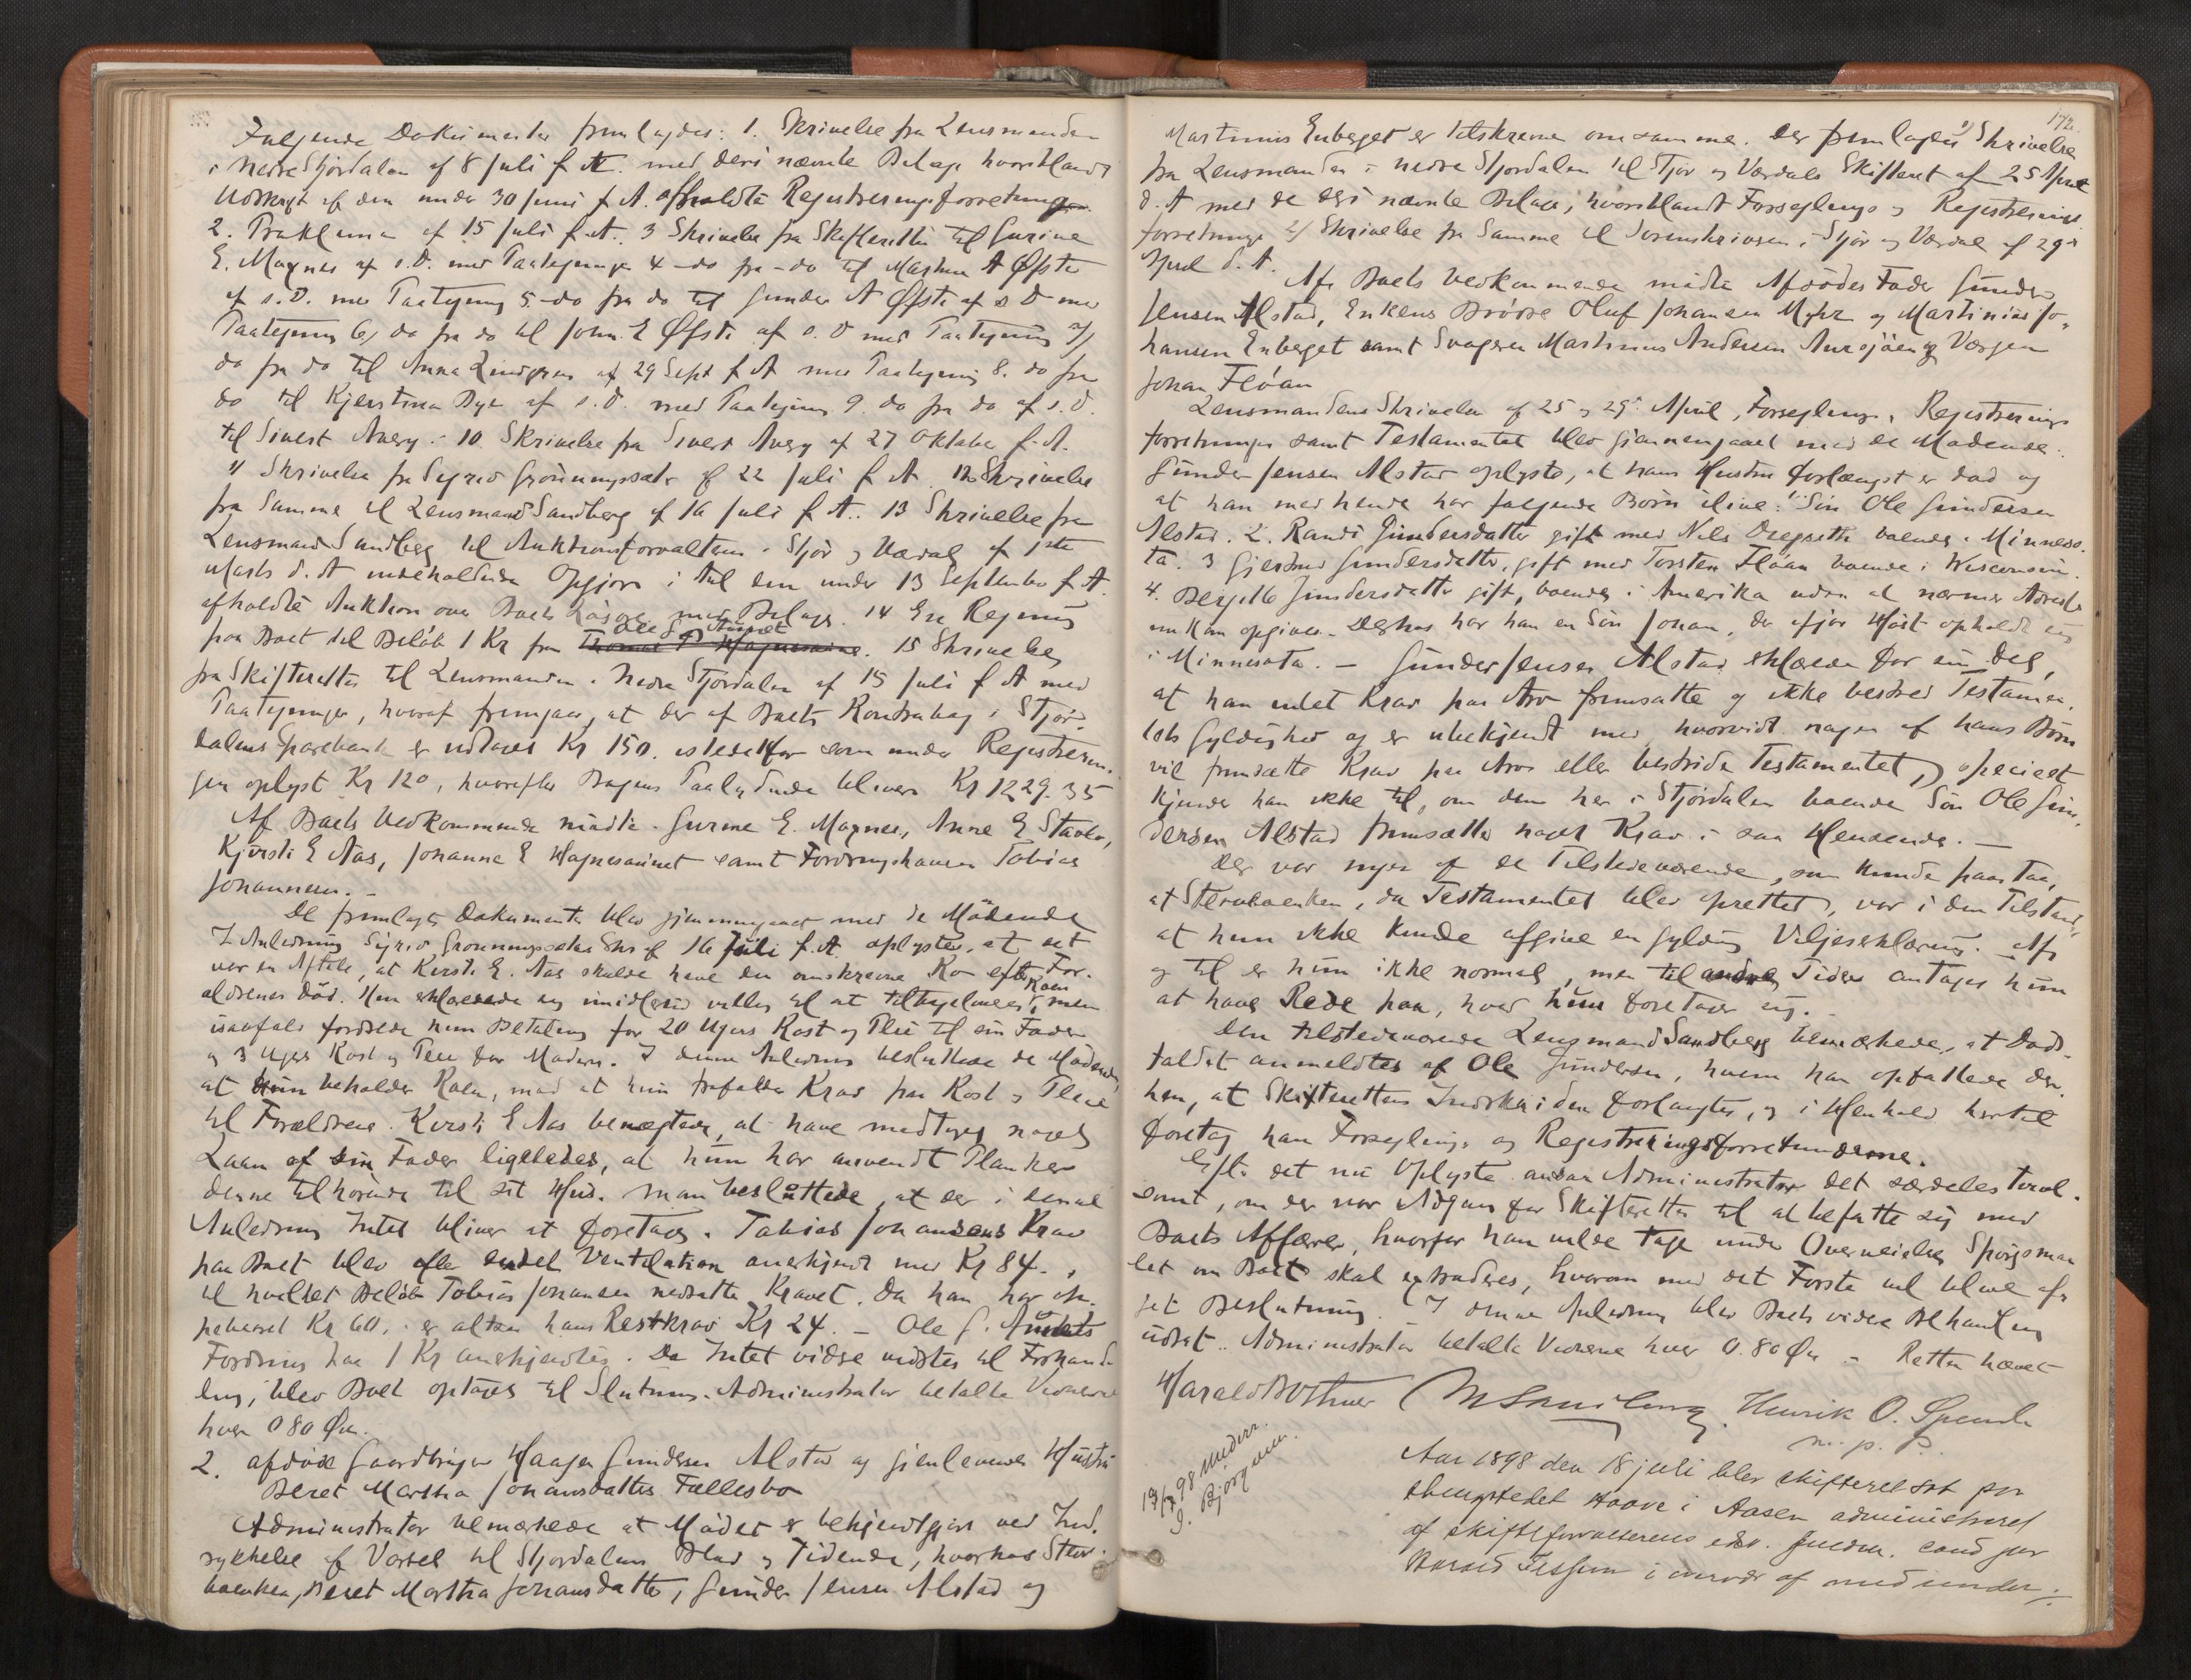 Følgende Dokumenter fremlagdes: 1. Skrivelse fra Lensmanden
i Nedre Stjørdalen af 8 Juli f. A. med deri nævnte Bilage hvoriblandt
Udskrift af den under 30 Juni f. A. afholdte Registreringsforretning
2. Proklama af 15 Juli f. A. 3 Skrivelse fra Skifteretten til Gurine
E. Magnes af s. D. med Paategning 4 - do fra - do til Marten A Øfsti
af s. D. med Paategning 5 - do fra do til Gunder A Øfsti af s D med
Paategning 6) do fra do til John E Øfsti af s. D med Paategning 7)
do fra do til Anna Lindgren af 29 Sept f A med Paategning 8. do fra
do til Kjerstina Bye af s. D. med Paategning 9. do fra do af s. D.
til Sivert Avery. 10 Skrivelse fra Sivert Avery af 27 Oktober f. A.
11 Skrivelse fra Sigrid Grønningssæter af 22 Juli f A 12 Skrivelse
fra Samme til Lensmand Sandberg af 16 Juli f. A. 13 Skrivelse fra
Lensmand Sandberg til Auktionsforvalteren i Stjør og Værdal af 1ste
Marts d. A indeholdende Opgjør i Anl den under 13 September f. A.
afholdte Auktion over Boets Løsøre med Bilage. 14 En Regning
Ole G. Aunet
paa Boet til Beløb 1 Kr fra . 15 Skrivelse
fra Skifteretten til Lensmanden i Nedre Stjørdalen af 15 Juli f A med
Paategninger, hvoraf fremgaar, at der af Boets Kontrabog i Stjør-
dalens Sparebank er udtaget Kr 150. istedetfor som under Registrerin-
gen oplyst Kr 120, hvorefter Bogens Paalydende bliver Kr 1229.35
Af Boets Vedkommende mødte Gurine E. Magnes, Anne E Stavlo,
Kjersti E Aas, Johanne E Hognesaunet samt Fordringshaveren Tobias
Johannesen. -
De fremlagte Dokumenter blev gjennemgaaet med de Mødende
I Anledning Sigrid Grønningssæters Skr af 16 Juli f. A. oplystes, at det
var en Aftale, at Kirsti E. Aas skulde have den omskrevne Ko efter For-
ældrenes Død. Hun erklærede sig imidlertid villig til at tilbagelevere Koen, men
isaafald fordrede hun Betaling for 20 Ugers Kost og Pleie til sin Fader
og 3 Ugers Kost og Pleie for Moderen. I denne Anledning besluttede de Mødende,
at hun beholder Koen, mod at hun frafalder Krav paa Kost og Pleie
til Forældrene. Kirsti E Aas benægtede, at have modtaget noget
Laan af sin Fader ligeledes, at hun har anvendt Planker
denne tilhørende til sit Hus. Man besluttede, at der i denne
Anledning Intet bliver at foretage. Tobias Johansens Krav
paa Boet blev efter endel Ventilation anerkjendt med Kr 84.,
til hvilket Beløb Tobias Johansen nedsatte Kravet. Da han har op-
pebaaret Kr 60,. er altsaa hans Restkrav Kr 24. - Ole G. Aunets
Fordring paa 1 Kr anerkjendtes. Da Intet videre vidstes til Forhand-
ling, blev Boet optaget til Slutning. Administrator betalte Vidnerne
hver 0 80 Øre.
2. afdøde Gaardbruger Haagen Gundersen Alstad og gjenlevende Hustru
Beret Martha Johansdatters Fællesbo
Administrator bemærkede at Mødet er bekjendtgjort ved Ind-
rykkelse af Varsel til Stjørdalens Blad og Tidende, hvorhos Sterv-
boenken, Beret Martha Johansdatter, Gunder Jensen Alstad og
172.
Martinus Enberget er tilskrevne om samme. Der fremlagdes 1) Skrivelse
fra Lensmanden i nedre Stjørdalen til Stjør og Værdals Skifteret af 25 April
d. A med de deri nævnte Bilage, hvoriblandt Forseglings og Registrerings
forretninge 2) Skrivelse fra Samme til Sorenskriveren i Stjør og Værdal af 29de
April d. A.
Af Boets Vedkommende mødte Afdødes Fader Gunder
Jensen Alstad, Enkens Brødre Oluf Johansen Myhr og Martinus Jo-
hansen Enberget samt Svogeren Martinus Andersen Aunsjøen og Værgen
Johan Flóan
Lensmandens Skrivelser af 25 og 29de April, Forseglings, Registrerings
forretninger samt Testamentet blev gjennemgaaet med de Mødende.
Gunder Jensen Alstad oplyste, at hans Hustru forlængst er død og
at han med hende har følgende Børn ilive: 1. Søn Ole Gundersen
Alstad. 2. Randi Gundersdatter gift med Nels boende i Minneso-
ta. 3 Gjertrud Gundersdatter, gift med Torsten Flóan boende i Wisconsin.
4. Bergitte Gundersdatter gift, boende i Amerika uden at nærmere Adresse
kan opgives. Desuden har han en Søn Johan, der ifjor Høst opholdt sig
i Minnesota. - Gunder Jensen Alstad erklærede for sin Del,
at han intet Krav paa Arv fremsatte og ikke bestred Testamen-
tets Gyldighed og er ubekjendt med, hvorvidt nogen af hans Børn
vil fremsætte Krav paa Arv eller bestride Testamentet, specielt
kjender han ikke til, om den her i Stjørdalen boende Søn Ole Gun-
dersen Alstad fremsætter noget Krav i saa Henseende. -
Der var ingen af de Tilstedeværende, som kunde paastaa,
at Stervboenken, da Testamentet blev oprettet, var i den Tilstand,
at hun ikke kunde afgive en gyldig Viljeserklæring. Af
og til er hun ikke normal, men til andre Tider antages hun
at have Rede paa, hvad hun foretager sig.
Den tilstedeværende Lensmand Sandberg bemærkede, at Døds-
faldet anmeldtes af Ole Gundersen, hvem han opfattede der-
hen, at Skifterettens Indskriden forlangtes, og i Henhold hertil
foretog han Forseglings og Registreringsforretningerne.
Efter det nu Oplyste ansaa Administrator det særdeles tvivl-
somt, om der var Adgang for Skifteretten til at befatte sig med
Boets Affærer, hvorfor han vilde tage under Overveielse Spørgsmaa-
let om Boet skal extraderes, hvorom med det Første vil blive af-
sat Beslutning. I denne Anledning blev Boets videre Behandling
udsat. Administrator betalte Vidnerne hver 0.80 Øre - Retten hævet
Harald Bothner M Sandberg. Henrik O.
m. p. P.
19/7 98 Underr.
J. Bjørgum.
Aar 1898 den 18 juli blev skifteret sat paa
thingstedet Haave i Aasen administreret
af skifteforvalterens edsv. fuldm. cand jur
Harald i overvær af medunder-